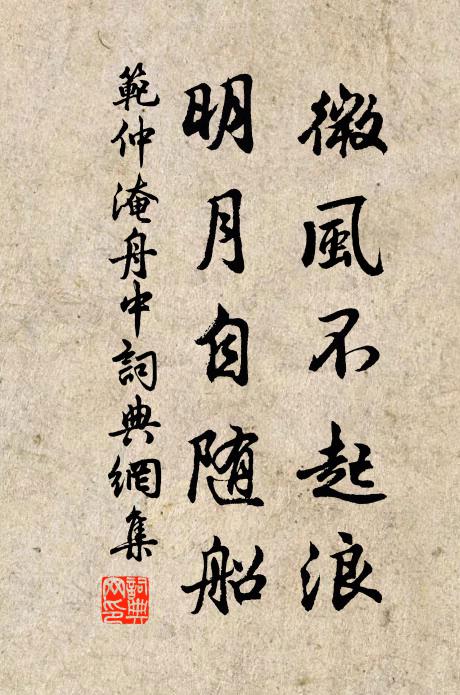 微風不起浪
明月自随船
範仲淹舟中詞典網集
詞典
网印